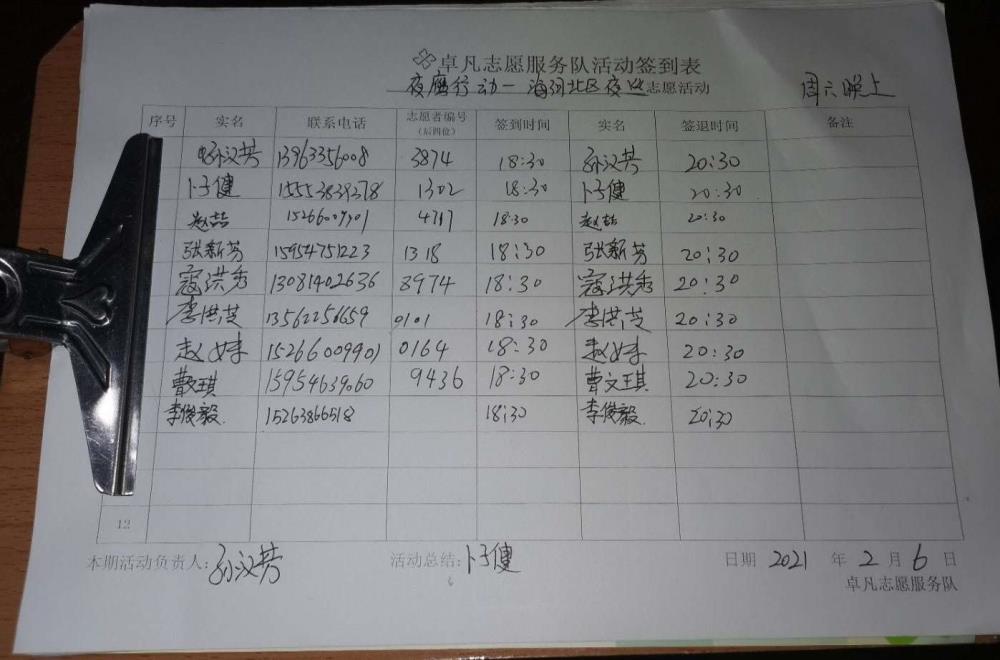 卓凡志愿服务队活动签到表
夜鹰行动一海河北区夜巡志愿活动 周六晚上
序号 实名 联系电话 志愿者编号(后四位) 签到时间 实名 签退时间 备注
孙汉芳 13963356008 3874 18:30 孙汉芳 20:30
卜子健 15553839278 1302 18:30 卜子健 20:30
赵喆 15266009901 4717 18:30 赵喆 20:30
张新芳 15954751223 1318 18:30 张新芳 20:30
寇洪秀 13081402636 8974 18:30 寇洪秀 20:30
李洪芝 13562256659 0101 18:30 李洪芝 20:30
赵婷 15266009901 0164 18:30 赵婷 20:30
曹文琪 15954639060 9436 18:30 曹文琪 20:30
李俊毅 15263866518 18:30 李俊毅 20:30
12
本期活动负责人:孙汉芳 活动总结:卜子健 日期 2021 年 2 月 6 日
卓凡志愿服务队